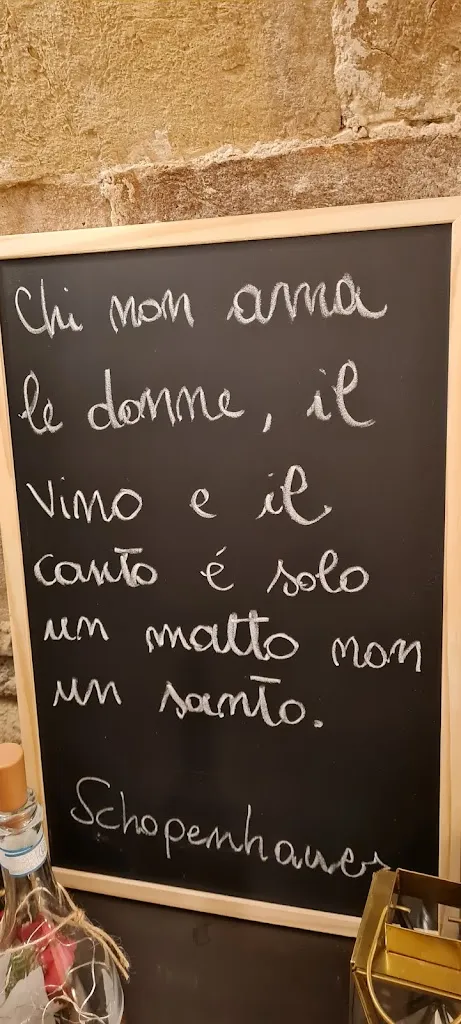 Chi non ama
le donne, il
vino e il
canto é solo
un matto non
un santo.
Schopenhauer